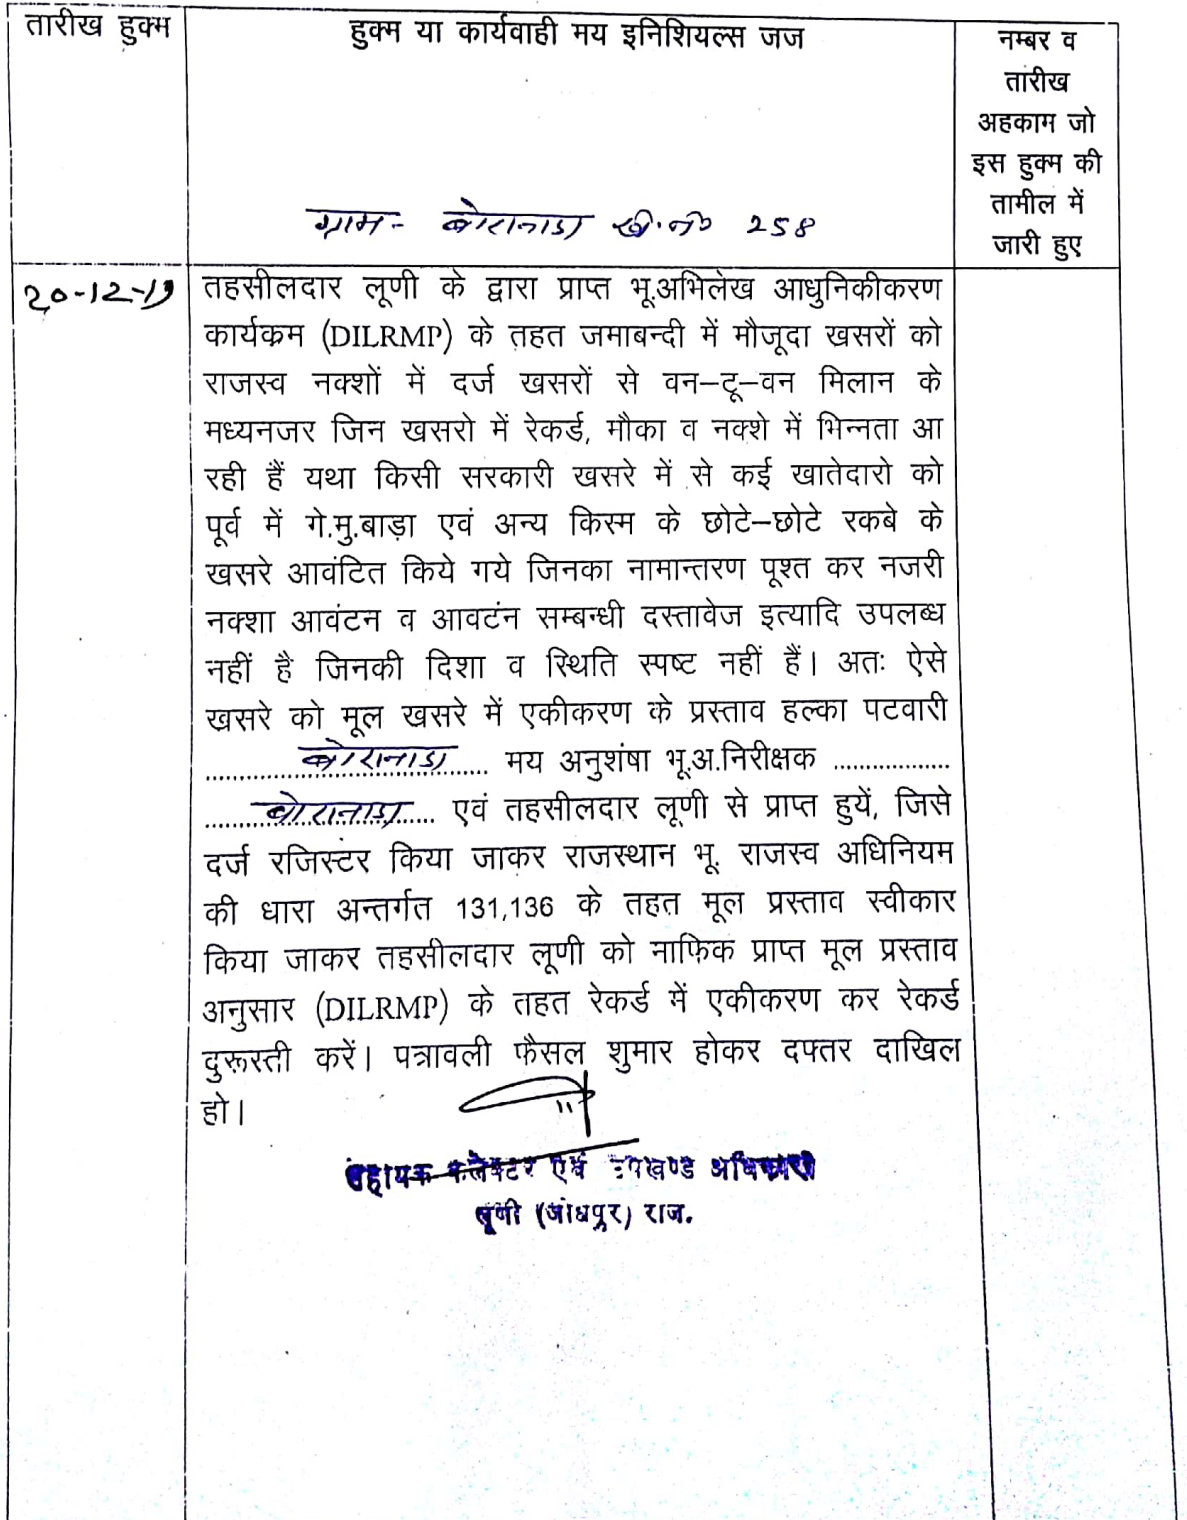 तारीख हुक्म
हुक्म या कार्यवाही मय इनिशियल्स जज
नम्बर व
तारीख
अहकाम जो
इस हुक्म की
तामील में
जारी हुए
ग्राम- बोरानाडा ख.नं० 258
20-12-19
तहसीलदार लूणी के द्वारा प्राप्त भू.अभिलेख आधुनिकीकरण
कार्यक्रम (DILRMP) के तहत जमाबन्दी में मौजूदा खसरों को
राजस्व नक्शों में दर्ज खसरों से वन–टू–वन मिलान के
मध्यनजर जिन खसरो में रेकर्ड, मौका व नक्शे में भिन्नता आ
रही हैं यथा किसी सरकारी खसरे में से कई खातेदारो को
पूर्व में गे.मु.बाड़ा एवं अन्य किस्म के छोटे–छोटे रकबे के
खसरे आवंटित किये गये जिनका नामान्तरण पूश्त कर नजरी
नक्शा आवंटन व आवटंन सम्बन्धी दस्तावेज इत्यादि उपलब्ध
नहीं है जिनकी दिशा व स्थिति स्पष्ट नहीं हैं। अतः ऐसे
खसरे को मूल खसरे में एकीकरण के प्रस्ताव हल्का पटवारी
बोरानाडा मय अनुशंषा भू.अ.निरीक्षक ..................
बोरानाडा एवं तहसीलदार लूणी से प्राप्त हुयें, जिसे
दर्ज रजिस्टर किया जाकर राजस्थान भू. राजस्व अधिनियम
की धारा अन्तर्गत 131,136 के तहत मूल प्रस्ताव स्वीकार
किया जाकर तहसीलदार लूणी को नाफिक प्राप्त मूल प्रस्ताव
अनुसार (DILRMP) के तहत रेकर्ड में एकीकरण कर रेकर्ड
दुरूस्ती करें। पत्रावली फैसल शुमार होकर दफ्तर दाखिल
हो।
सहायक कलेक्टर एवं उपखण्ड अधिकारी
लूणी (जोधपुर) राज.